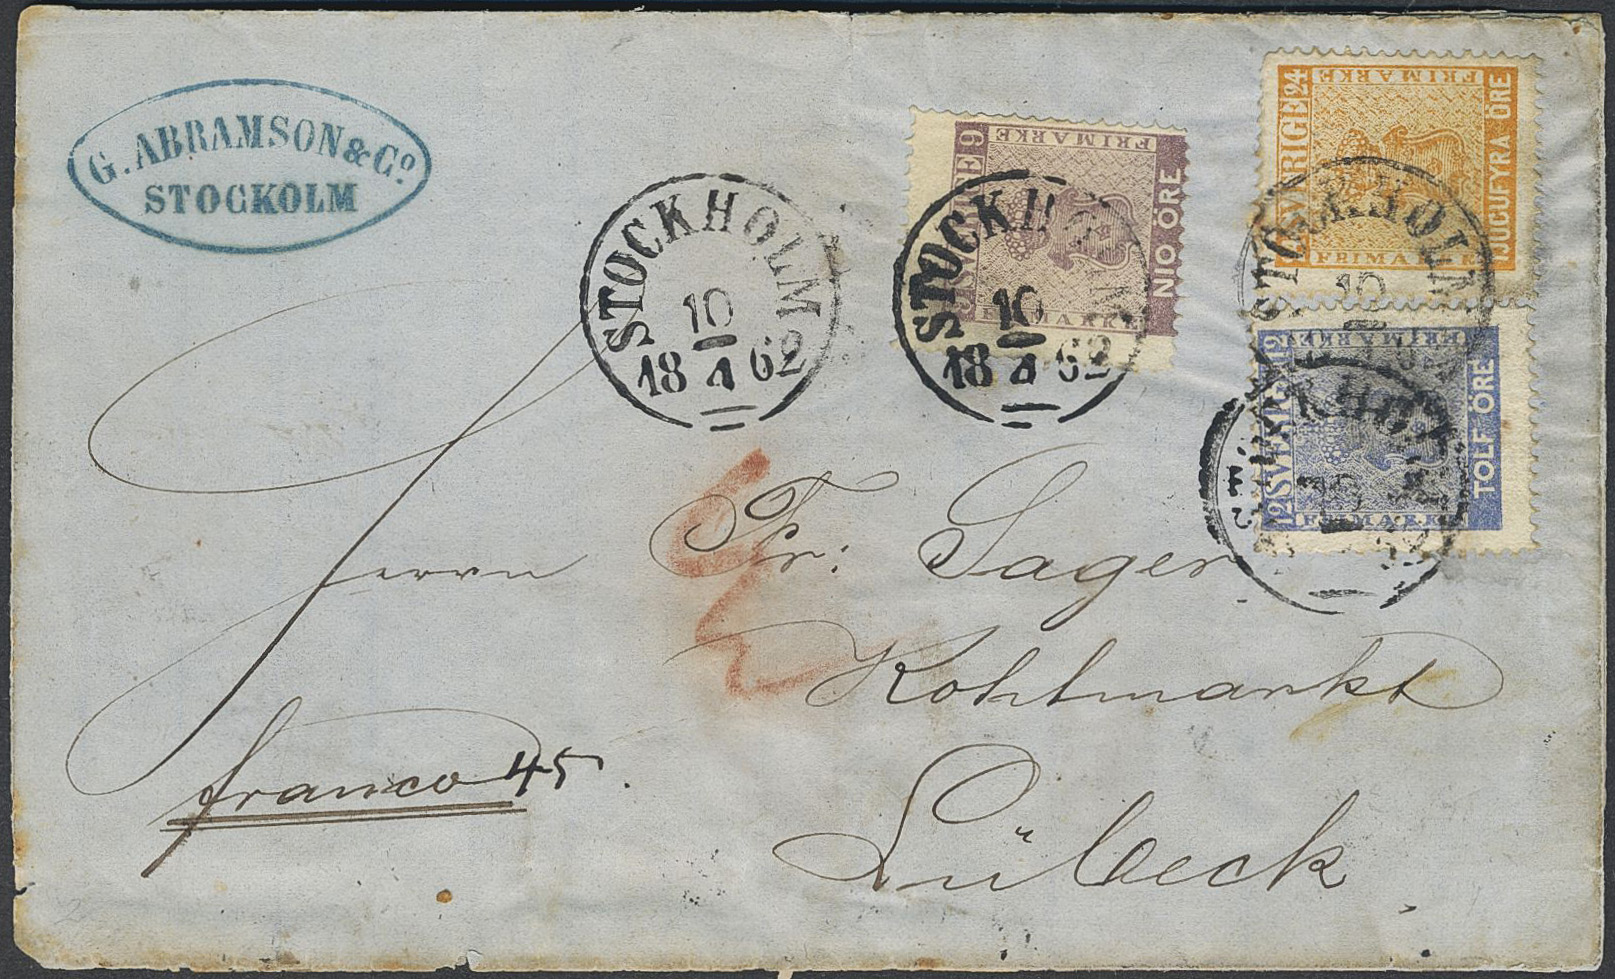 G. ABRAMSON & Cº
STOCKOLM
STOCKHOLM
10
18 1 62
SVERIGE 9
FRIMARKE
NIO ÖRE
FRIMARKE
STOCKHOLM
10
18 1 62
SVERIGE 24
FRIMARKE
TJUGUFYRA ÖRE
FRIMARKE
STOCKHOLM
10
12 SVERIGE 12
FRIMARKE
TOLF ÖRE
FRIMARKE
Herrn Fr: Sager
Kohlmarkt
franco 45.
Lübeck